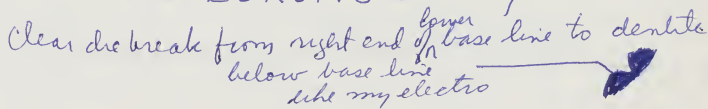 Clear die break from right end of lower base line to dentile
below base line
like my electro